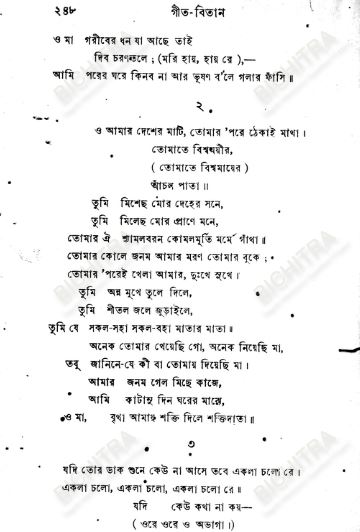 ২৪৮ গীত-বিতান
ও মা গরীবের ধন যা আছে তাই
দিব চরণতলে ; (মরি হায়, হায় রে ),—
আমি পরের ঘরে কিনব না আর ভূষণ ব'লে গলার ফাঁসি॥
২
ও আমার দেশের মাটি, তোমার 'পরে ঠেকাই মাথা।
তোমাতে বিশ্বময়ীর,
( তোমাতে বিশ্বমায়ের )
আঁচল পাতা॥
তুমি মিশেছ মোর দেহের সনে,
তুমি মিলেছ মোর প্রাণে মনে,
তোমার ঐ শ্যামলবরন কোমলমূর্তি মর্মে গাঁথা॥
তোমার কোলে জনম আমার মরণ তোমার বুকে ;
তোমার 'পরেই খেলা আমার, দুঃখে সুখে।
তুমি অন্ন মুখে তুলে দিলে,
তুমি শীতল জলে জুড়াইলে,
তুমি যে সকল-সহা সকল-বহা মাতার মাতা॥
অনেক তোমার খেয়েছি গো, অনেক নিয়েছি মা,
তবু জানিনে-যে কী বা তোমায় দিয়েছি মা।
আমার জনম গেল মিছে কাজে,
আমি কাটানু দিন ঘরের মাঝে,
ও মা, বৃথা আমায় শক্তি দিলে শক্তিদাতা॥
৩
যদি তোর ডাক শুনে কেউ না আসে তবে একলা চলো রে।
একলা চলো, একলা চলো, একলা চলো রে॥
যদি কেউ কথা না কয়—
( ওরে ওরে ও অভাগা।)
BICHITRA